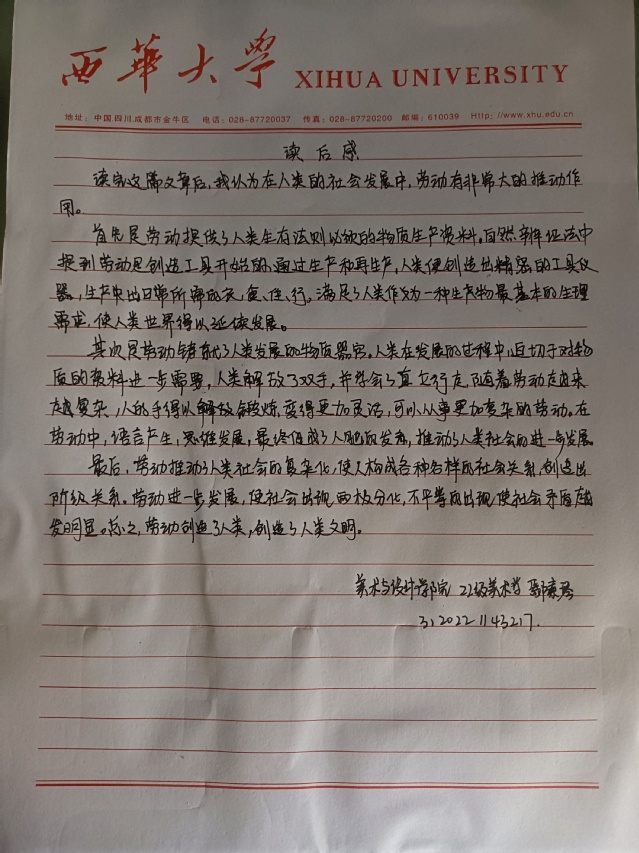 西華大学 XIHUA UNIVERSITY
地址：中国.四川.成都市金牛区 电话：028-87720037 传真：028-87720200 邮编：610039 Http://www.xhu.edu.cn
读后感
读完这篇文章后，我认为在人类的社会发展中，劳动有非常大的推动作
用。
首先是劳动提供了人类生存法则必须的物质生产资料。自然辩证法中
提到劳动是创造工具开始的，通过生产和再生产，人类便创造出精密的工具仪
器，生产出日常所需的衣、食、住、行。满足了人类作为一种生产物最基本的生理
需求，使人类世界得以延续发展。
其次是劳动铸就了人类发展的物质器官。人类在发展的过程中，迫切于对物
质的资料进一步需要，人类解放了双手，并学会了直立行走，随着劳动越来
越复杂，人的手得以解放锻炼，变得更加灵活，可以从事更加复杂的劳动。在
劳动中，语言产生，思维发展，最终促成了人脑的发育，推动了人类社会的进一步发展。
最后，劳动推动了人类社会的复杂化，使人构成各种各样的社会关系，创造出
阶级关系。劳动进一步发展，使社会出现两极分化，不平等的出现使社会矛盾越
发明显。总之，劳动创造了人类，创造了人类文明。
美术与设计学院 22级美术学
3120221143217.